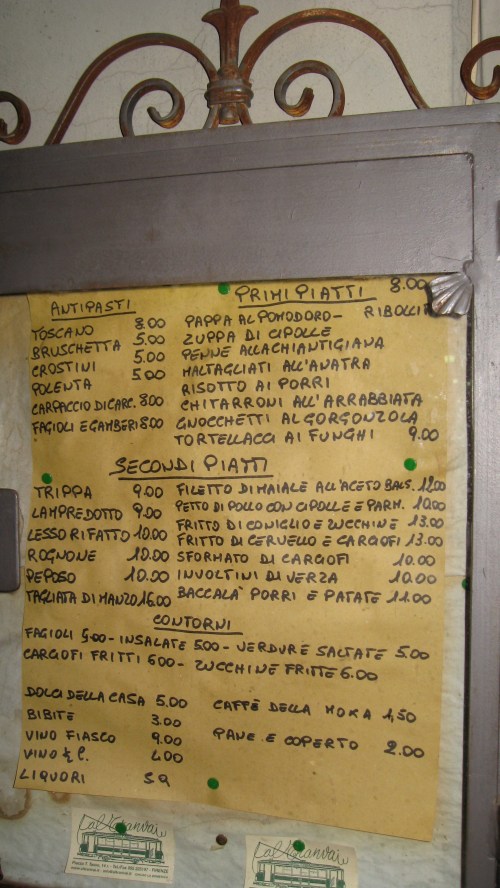 ANTIPASTI
TOSCANO 8.00
BRUSCHETTA 5.00
CROSTINI 5.00
POLENTA 5.00
CARPACCIO DI CARC. 8.00
FAGIOLI E GAMBERI 8.00
PRIMI PIATTI 8.00
PAPPA AL POMODORO - RIBOLLI
ZUPPA DI CIPOLLE
PENNE ALLA CHIANTIGIANA
MALTAGLIATI ALL'ANATRA
RISOTTO AI PORRI
CHITARRONI ALL'ARRABBIATA
GNOCCHETTI AL GORGONZOLA
TORTELLACCI AI FUNGHI 9.00
SECONDI PIATTI
TRIPPA 9.00
LAMPREDOTTO 9.00
LESSO RIFATTO 10.00
ROGNONE 10.00
PEPOSO 10.00
TAGLIATA DI MANZO 16.00
FILETTO DI MAIALE ALL'ACETO BALS. 12.00
PETTO DI POLLO CON CIPOLLE E PARM. 10.00
FRITTO DI CONIGLIO E ZUCCHINE 13.00
FRITTO DI CERVELLO E CARCIOFI 13.00
SFORMATO DI CARCIOFI 10.00
INVOLTINI DI VERZA 10.00
BACCALA' PORRI E PATATE 11.00
CONTORNI
FAGIOLI 5.00 - INSALATE 5.00 - VERDURE SALTATE 5.00
CARCIOFI FRITTI 6.00 - ZUCCHINE FRITTE 6.00
DOLCI DELLA CASA 5.00
BIBITE 3.00
VINO FIASCO 9.00
VINO 1/2 L. 4.00
LIQUORI S.Q
CAFFÈ DELLA MOKA 1,50
PANE E COPERTO 2.00